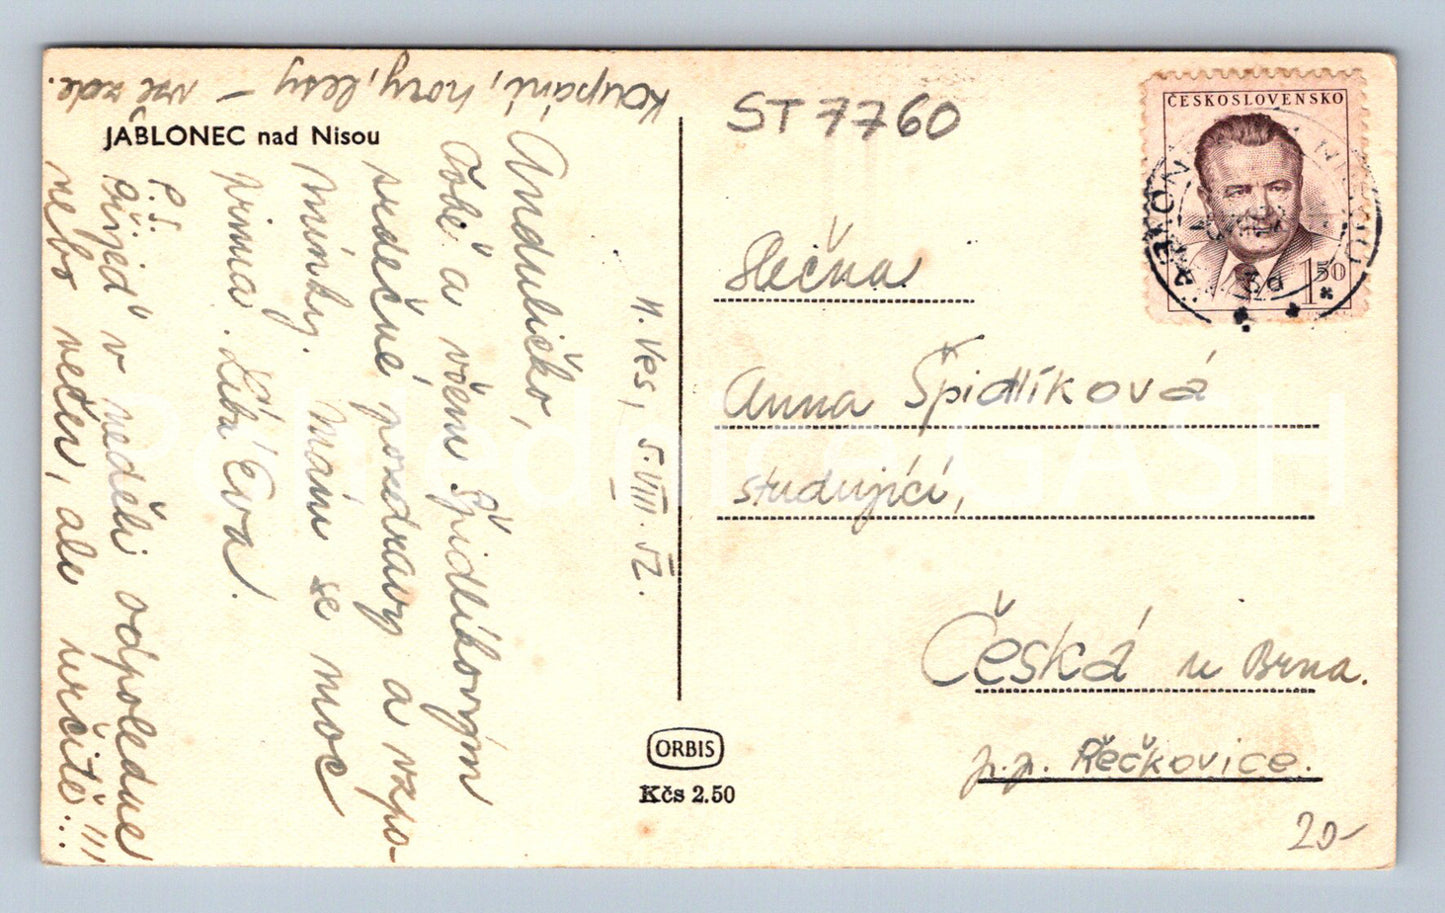 JABLONEC nad Nisou
N. Ves, 5.VIII.52.
Anduličko,
Tobě a všem Špidlíkovým
srdečné pozdravy a vzpo-
mínky. Mám se moc
prima. Líba Eva!
P.S.
Přijeď v neděli odpoledne
nebo večer, ale určitě...!!!
Koupání, hory, lesy – vše zde.
ORBIS
Kčs 2.50
ST 7760
ČESKOSLOVENSKO
1 50
Slečna
Anna Špidlíková
studující,
Česká u Brna.
p.p. Řečkovice.
20-
Pohlednice GASH